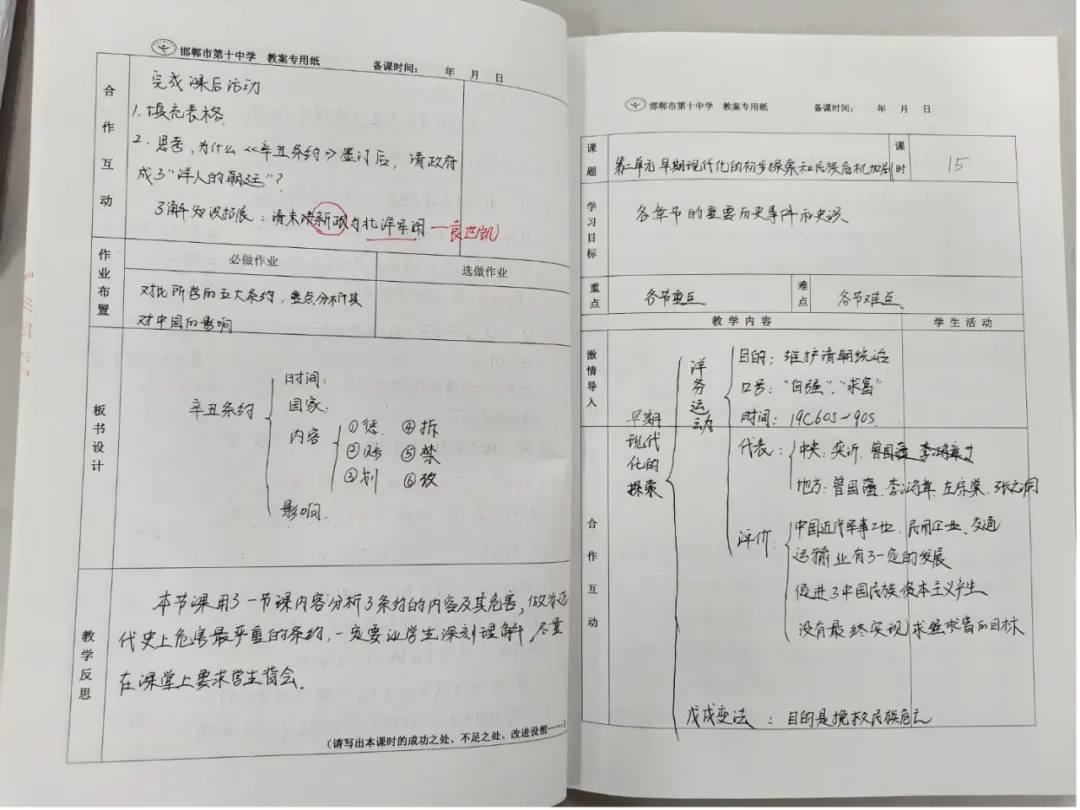 邯郸市第十中学 教案专用纸 备课时间： 年 月 日
合作互动
完成课后活动
1. 填充表格
2. 思考，为什么《辛丑条约》签订后，清政府
成了"洋人的朝廷"？
了解知识拓展：清末新政与北洋军阀—袁世凯)
作业布置
必做作业 选做作业
对比所学的五大条约，重点分析其
对中国的影响
板书设计
辛丑条约
时间：
国家：
内容
①惩 ④拆
②赔 ⑤禁
③划 ⑥改
影响.
教学反思
本节课用了一节课内容分析了条约的内容及其危害，做为近
代史上危害最严重的条约，一定要让学生深刻理解，尽量
在课堂上要求学生背会.
（请写出本课时的成功之处、不足之处、改进设想……）
邯郸市第十中学 教案专用纸 备课时间： 年 月 日
课题 第二单元 早期现代化的初步探索和民族危机加剧 课时 15
学习目标
各章节的重要历史事件和史识
重点 各节重点 难点 各节难点
教学内容 学生活动
激情导入
合作互动
早期现代化的探索
洋务运动
目的：维护清朝统治
口号："自强"、"求富"
时间：19C60S~90S.
代表：
中央：奕䜣
地方：曾国藩、李鸿章、左宗棠、张之洞
评价
中国近代军事工业、民用企业、交通
运输业有了一定的发展
促进了中国民族资本主义产生
没有最终实现求强求富的目标
戊戌变法：目的是挽救民族危亡